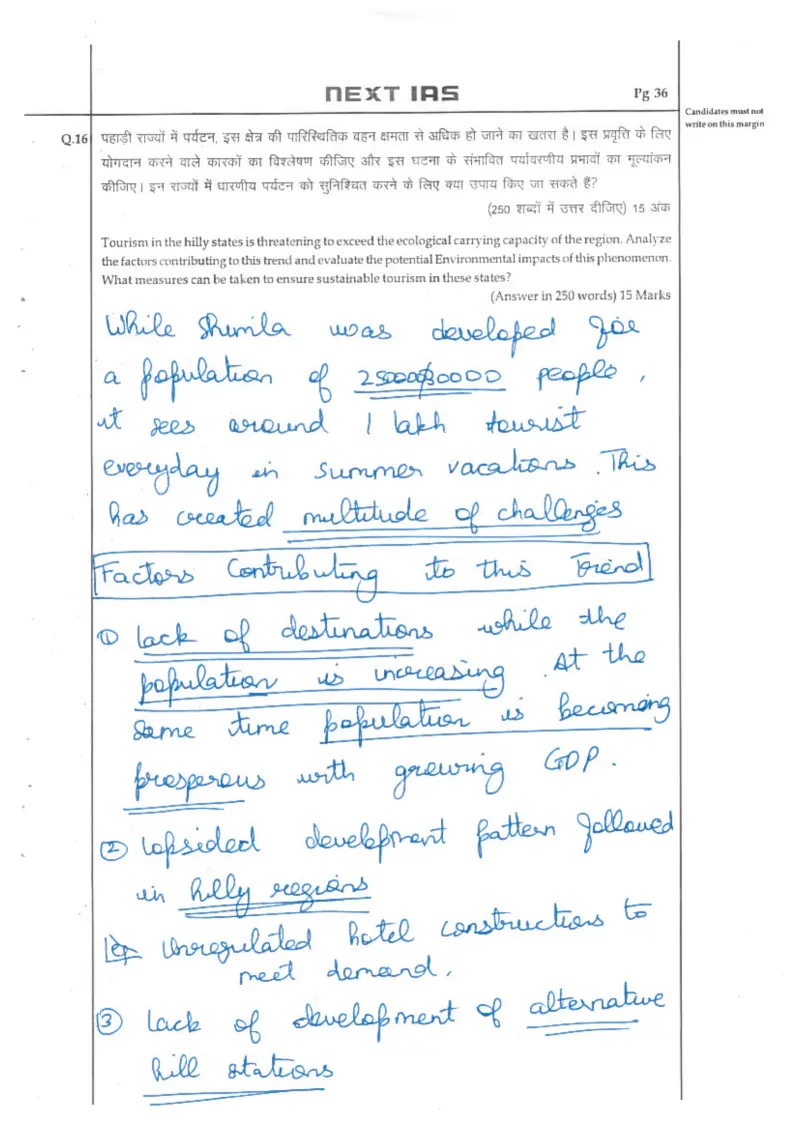 NEXT IAS
Pg 36
Candidates must not
write on this margin
Q.16 पहाड़ी राज्यों में पर्यटन, इस क्षेत्र की पारिस्थितिक वहन क्षमता से अधिक हो जाने का खतरा है। इस प्रवृति के लिए
योगदान करने वाले कारकों का विश्लेषण कीजिए और इस घटना के संभावित पर्यावरणीय प्रभावों का मूल्यांकन
कीजिए। इन राज्यों में धारणीय पर्यटन को सुनिश्चित करने के लिए क्या उपाय किए जा सकते हैं?
(250 शब्दों में उत्तर दीजिए) 15 अंक
Tourism in the hilly states is threatening to exceed the ecological carrying capacity of the region. Analyze
the factors contributing to this trend and evaluate the potential Environmental impacts of this phenomenon.
What measures can be taken to ensure sustainable tourism in these states?
(Answer in 250 words) 15 Marks
While Shimla was developed for
a population of people,
it sees around 1 lakh tourist
everyday in summer vacations. This
has created multitude of challenges
Factors Contributing to this Trend
① lack of destinations while the
population is increasing. At the
same time population is becoming
prosperous with growing GDP.
② Lopsided development pattern followed
in hilly regions
Unregulated hotel constructions to
meet demand.
③ Lack of development of alternative
hill stations